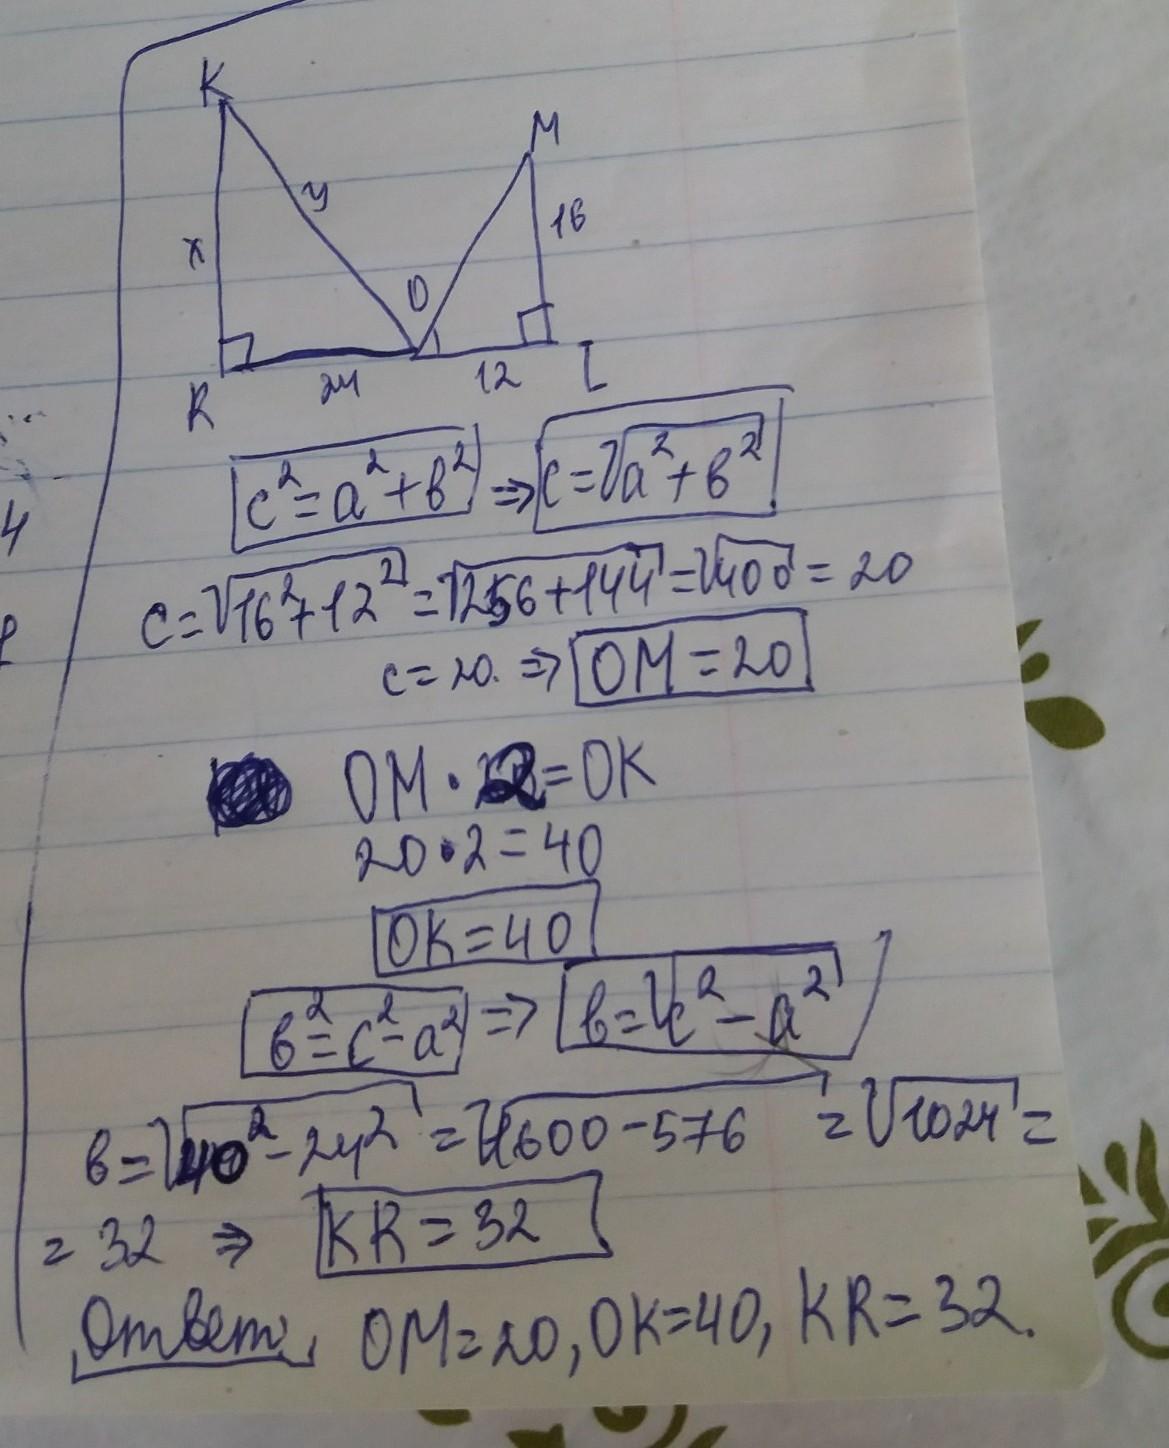 K
M
y
x
16
O
R
24
12
L
c²=a²+b² ⇒ c=√a²+b²
c=√16²+12²=√256+144=√400=20
c=20. ⇒ OM=20
OM·2=OK
20·2=40
OK=40
b²=c²-a² ⇒ b=√c²-a²
b=√40²-24²=√1600-576=√1024=
=32 ⇒ KR=32
Ответ: OM=20, OK=40, KR=32.
4